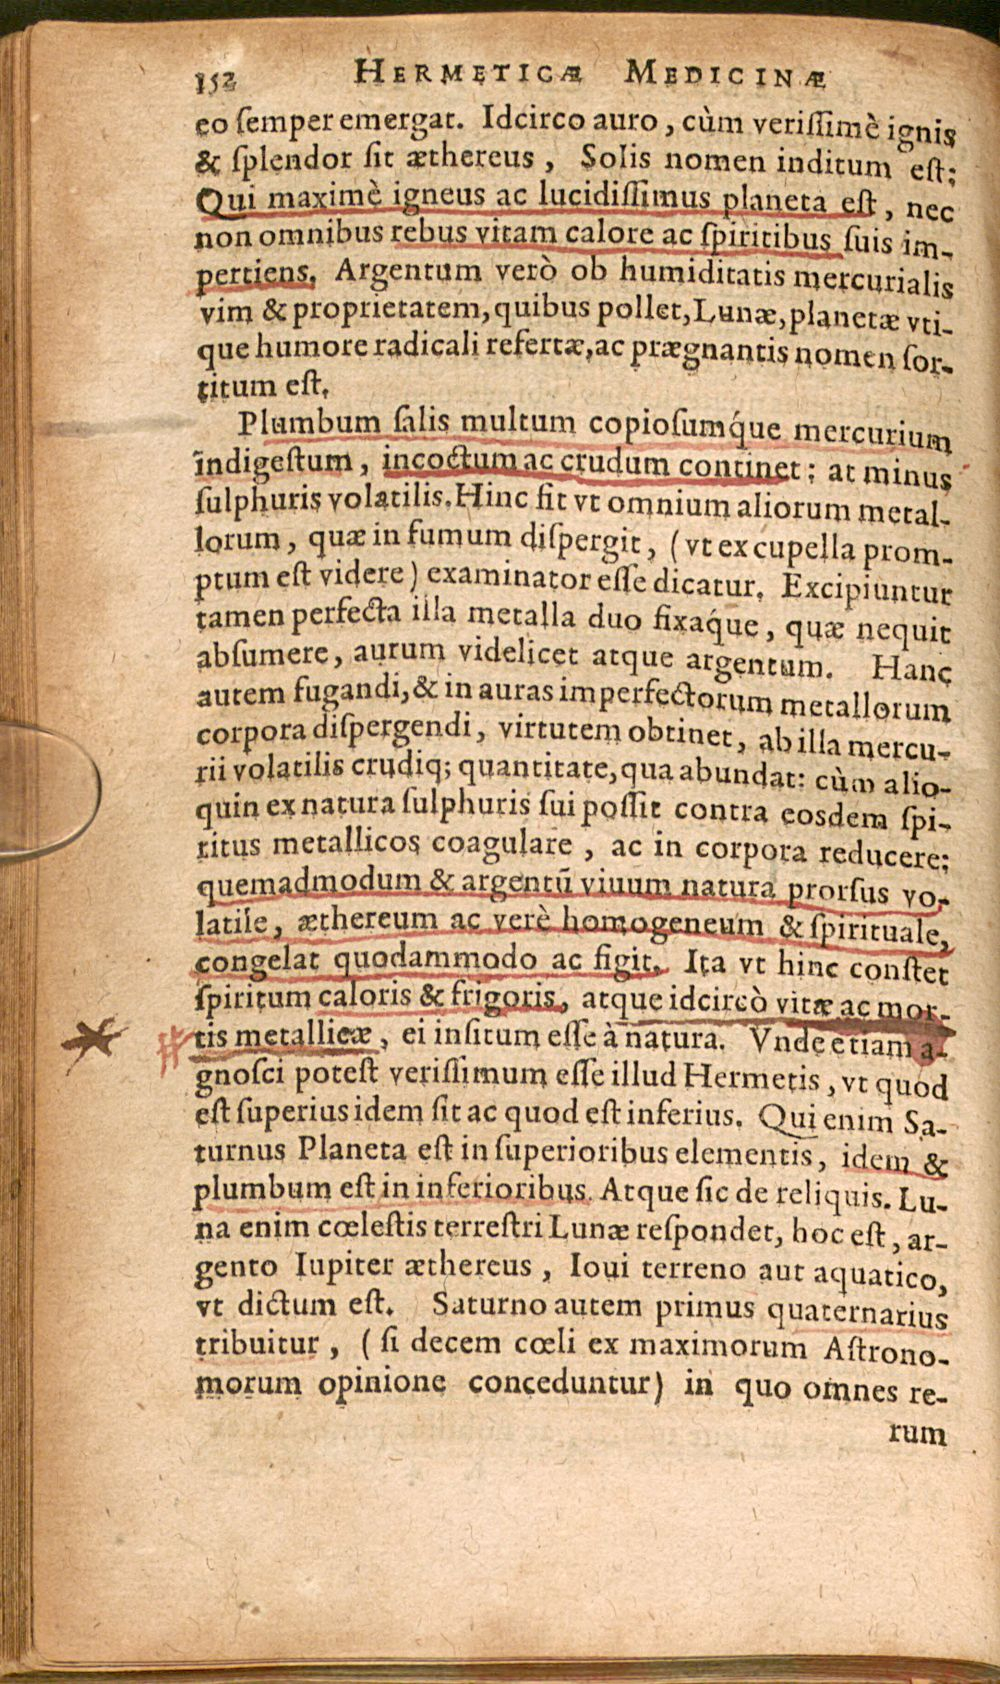 152 HERMETICÆ MEDICINÆ
eo ſemper emergat. Idcirco auro, cùm veriſſimè ignis
& ſplendor ſit æthereus, Solis nomen inditum eſt:
Qui maximè igneus ac lucidiſſimus planeta eſt, nec
non omnibus rebus vitam calore ac ſpiritibus ſuis im-
pertiens. Argentum verò ob humiditatis mercurialis
vim & proprietatem, quibus pollet, Lunæ, planetæ vti-
que humore radicali refertæ, ac prægnantis nomen ſor-
titum eſt.
Plumbum ſalis multum copioſumq́ue mercurium
indigeſtum, incoctum ac crudum continet: at minus
ſulphuris volatilis. Hinc fit vt omnium aliorum metal-
lorum, quæ in fumum diſpergit, (vt ex cupella prom-
ptum eſt videre) examinator eſſe dicatur. Excipiuntur
tamen perfecta illa metalla duo fixaq́ue, quæ nequit
abſumere, aurum videlicet atque argentum. Hanc
autem fugandi, & in auras imperfectorum metallorum
corpora diſpergendi, virtutem obtinet, ab illa mercu-
rii volatilis crudiq; quantitate, qua abundat: cùm alio-
quin ex natura ſulphuris ſui poſſit contra eosdem ſpi-
ritus metallicos coagulare, ac in corpora reducere:
quemadmodum & argentū viuum natura prorſus vo-
latile, æthereum ac verè homogeneum & ſpirituale,
congelat quodammodo ac figit. Ita vt hinc conſtet
ſpiritum caloris & frigoris, atque idcircò vitæ ac mor-
tis metallicæ, ei inſitum eſſe à natura. Vnde etiam a-
gnoſci poteſt veriſſimum eſſe illud Hermetis, vt quod
eſt ſuperius idem ſit ac quod eſt inferius. Qui enim Sa-
turnus Planeta eſt in ſuperioribus elementis, idem &
plumbum eſt in inferioribus. Atque ſic de reliquis. Lu-
na enim cœleſtis terreſtri Lunæ reſpondet, hoc eſt, ar-
gento Iupiter æthereus, Ioui terreno aut aquatico,
vt dictum eſt. Saturno autem primus quaternarius
tribuitur, (ſi decem cœli ex maximorum Aſtrono-
morum opinione conceduntur) in quo omnes re-
rum